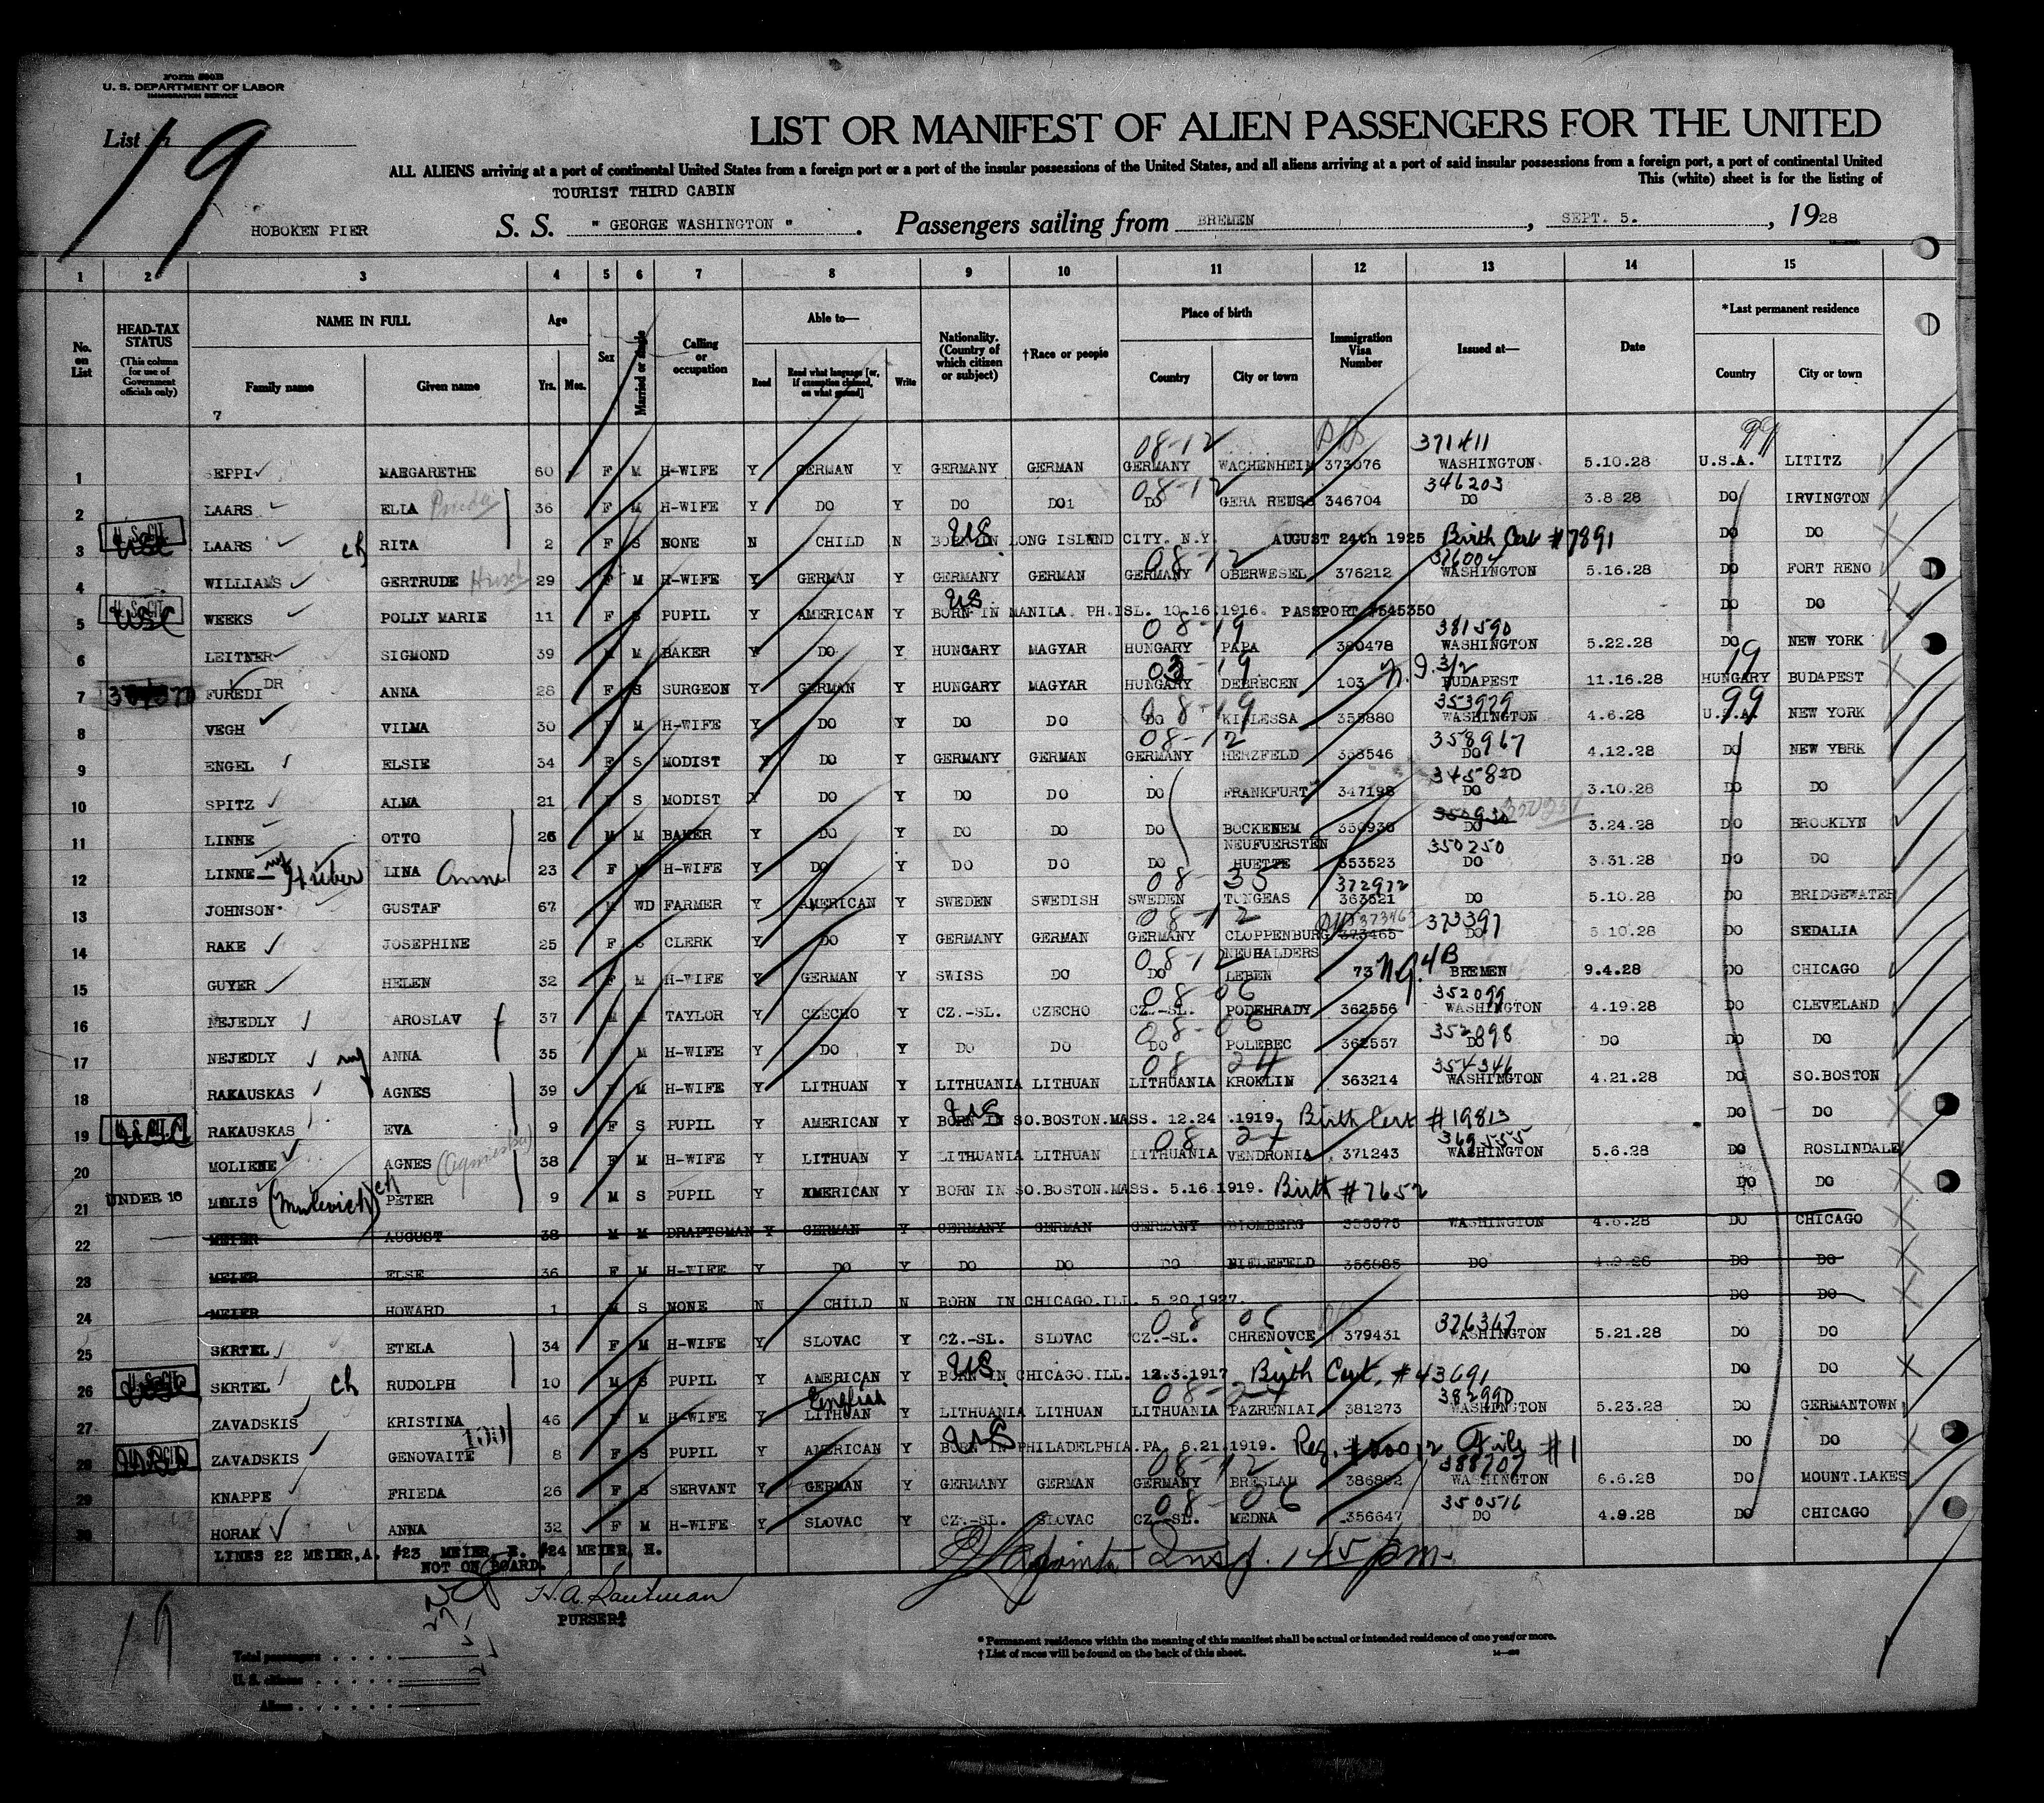 Form 500B
U. S. DEPARTMENT OF LABOR
IMMIGRATION SERVICE
List 19
LIST OR MANIFEST OF ALIEN PASSENGERS FOR THE UNITED
ALL ALIENS arriving at a port of continental United States from a foreign port or a port of the insular possessions of the United States, and all aliens arriving at a port of said insular possessions from a foreign port, a port of continental United
This (white) sheet is for the listing of
TOURIST THIRD CABIN
HOBOKEN PIER S. S. " GEORGE WASHINGTON " . Passengers sailing from BREMEN , SEPT. 5. , 1928
1 2 3 4 5 6 7 8 9 10 11 12 13 14 15
No. on List
HEAD-TAX STATUS (This column for use of Government officials only)
NAME IN FULL
Family name Given name
Age Yrs. Mos.
Sex
Married or single
Calling or occupation
Able to—
Read Read what language [or, if exemption claimed, on what ground] Write
Nationality. (Country of which citizen or subject)
†Race or people
Place of birth
Country City or town
Immigration Visa Number
Issued at—
Date
*Last permanent residence
Country City or town
7
08-12 371411 99
1 SEPPI MARGARETHE 60 F M H-WIFE Y GERMAN Y GERMANY GERMAN GERMANY WACHENHEIM 373076 WASHINGTON 5.10.28 U.S.A. LITITZ
08-12 346203
2 LAARS ELLA 36 F M H-WIFE Y DO Y DO DO1 DO GERA REUSS 346704 DO 3.8 28 DO IRVINGTON
3 U.S.CIT. USC LAARS ch RITA 2 F S NONE N CHILD N US BORN IN LONG ISLAND CITY. N.Y. AUGUST 24th 1925 Birth Cert #7891 DO DO
08-12 376004
4 WILLIAMS GERTRUDE 29 F M H-WIFE Y GERMAN Y GERMANY GERMAN GERMANY OBERWESEL 376212 WASHINGTON 5.16.28 DO FORT RENO
5 U.S.CIT. USC WEEKS POLLY MARIE 11 F S PUPIL Y AMERICAN Y US BORN IN MANILA. PH.ISL. 10.16.1916. PASSPORT #545350 DO DO
08-19 381590
6 LEITNER SIGMOND 39 M M BAKER Y DO Y HUNGARY MAGYAR HUNGARY PAPA 380478 WASHINGTON 5.22.28 DO NEW YORK
03 19 N.Q. 3/2 19
7 FUREDI DR ANNA 28 F S SURGEON Y GERMAN Y HUNGARY MAGYAR HUNGARY DEBRECEN 103 BUDAPEST 11.16.28 HUNGARY BUDAPEST
08-19 353979 99
8 VEGH VILMA 30 F M H-WIFE Y DO Y DO DO DO KISLESSA 355880 WASHINGTON 4.6.28 U.S.A. NEW YORK
08-12 358967
9 ENGEL ELSIE 34 F S MODIST Y DO Y GERMANY GERMAN GERMANY HERZFELD 358546 DO 4.12.28 DO NEW YORK
345820
10 SPITZ ALMA 21 F S MODIST Y DO Y DO DO DO FRANKFURT 347198 DO 3.10.28 DO DO
11 LINNE OTTO 26 M M BAKER Y DO Y DO DO DO BOCKENEM 350930 DO 3.24.28 DO BROOKLYN
350250
12 LINNE Huber LINA Anna 23 F M H-WIFE Y DO Y DO DO DO NEUFUERSTEN HUETTE 353523 DO 3.31.28 DO DO
08-35 372972
13 JOHNSON GUSTAF 67 M WD FARMER Y AMERICAN Y SWEDEN SWEDISH SWEDEN TONGEAS 363521 DO 5.10.28 DO BRIDGEWATER
08-12 373397
14 RAKE JOSEPHINE 25 F S CLERK Y DO Y GERMANY GERMAN GERMANY CLOPPENBURG 373465 DO 5.10.28 DO SEDALIA
08-12 N.Q. 4B
15 GUYER HELEN 32 F M H-WIFE Y GERMAN Y SWISS DO DO NEUHALDERS LEBEN 73 BREMEN 9.4.28 DO CHICAGO
08-06 352099
16 NEJEDLY AROSLAV 37 M M TAYLOR Y CZECHO Y CZ.-SL. CZECHO CZ.-SL. PODEHRADY 362556 WASHINGTON 4.19.28 DO CLEVELAND
08-06 352098
17 NEJEDLY ANNA 35 M H-WIFE Y DO Y DO DO DO POLEBEC 362557 DO DO DO DO
08 24 354346
18 RAKAUSKAS AGNES 39 F M H-WIFE Y LITHUAN Y LITHUANIA LITHUAN LITHUANIA KROKLIN 363214 WASHINGTON 4.21.28 DO SO.BOSTON
19 U.S.CIT. RAKAUSKAS EVA 9 F S PUPIL Y AMERICAN Y US BORN IN SO.BOSTON.MASS. 12.24 .1919. Birth Cert #19813 DO DO
08 24 369555
20 MOLIENE AGNES 38 F M H-WIFE Y LITHUAN Y LITHUANIA LITHUAN LITHUANIA VENDRONIA 371243 WASHINGTON 5.6.28 DO ROSLINDALE
21 UNDER 16 MOLIS (Mulevich) ch PETER 9 M S PUPIL Y AMERICAN Y BORN IN SO.BOSTON.MASS. 5.16.1919. Birth #7652 DO DO
22 MEIER AUGUST 38 M M DRAFTSMAN Y GERMAN Y GERMANY GERMAN GERMANY BLOMBERG WASHINGTON 4.6.28 DO CHICAGO
23 MEIER ELSE 36 F M H-WIFE Y DO Y DO DO DO BIELEFELD 356885 DO DO DO
24 MEIER HOWARD 1 M S NONE N CHILD N BORN IN CHICAGO.ILL. 5.20.1927. DO DO
08 06 376367
25 SKRTEL ETELA 34 F M H-WIFE Y SLOVAC Y CZ.-SL. SLOVAC CZ.-SL. CHRENOVCE 379431 WASHINGTON 5.21.28 DO DO
26 SKRTEL ch RUDOLPH 10 M S PUPIL Y AMERICAN Y US BORN IN CHICAGO.ILL. 12.3.1917 Birth Cert. #43691 DO DO
English 08-24 382990
27 ZAVADSKIS KRISTINA 46 F M H-WIFE Y LITHUAN Y LITHUANIA LITHUAN LITHUANIA PAZRENIAI 381273 WASHINGTON 5.23.28 DO GERMANTOWN
28 ZAVADSKIS GENOVAITE 8 F S PUPIL Y AMERICAN Y US BORN IN PHILADELPHIA.PA. 6.21.1919. Reg. File #1 DO DO
08-12 388707
29 KNAPPE FRIEDA 26 F S SERVANT Y GERMAN Y GERMANY GERMAN GERMANY BRESLAU 386892 WASHINGTON 6.6.28 DO MOUNT.LAKES
08-06 350516
30 HORAK ANNA 32 F M H-WIFE Y SLOVAC Y CZ.-SL. SLOVAC CZ.-SL. MEDNA 356647 DO 4.9.28 DO CHICAGO
LINES 22 MEIER,A. #23 MEIER, E. #24 MEIER, H.
NOT ON BOARD.
Insp. 145 pm.
PURSER
19
Total passengers
U. S. citizens
Aliens
* Permanent residence within the meaning of this manifest shall be actual or intended residence of one year or more.
† List of races will be found on the back of this sheet.